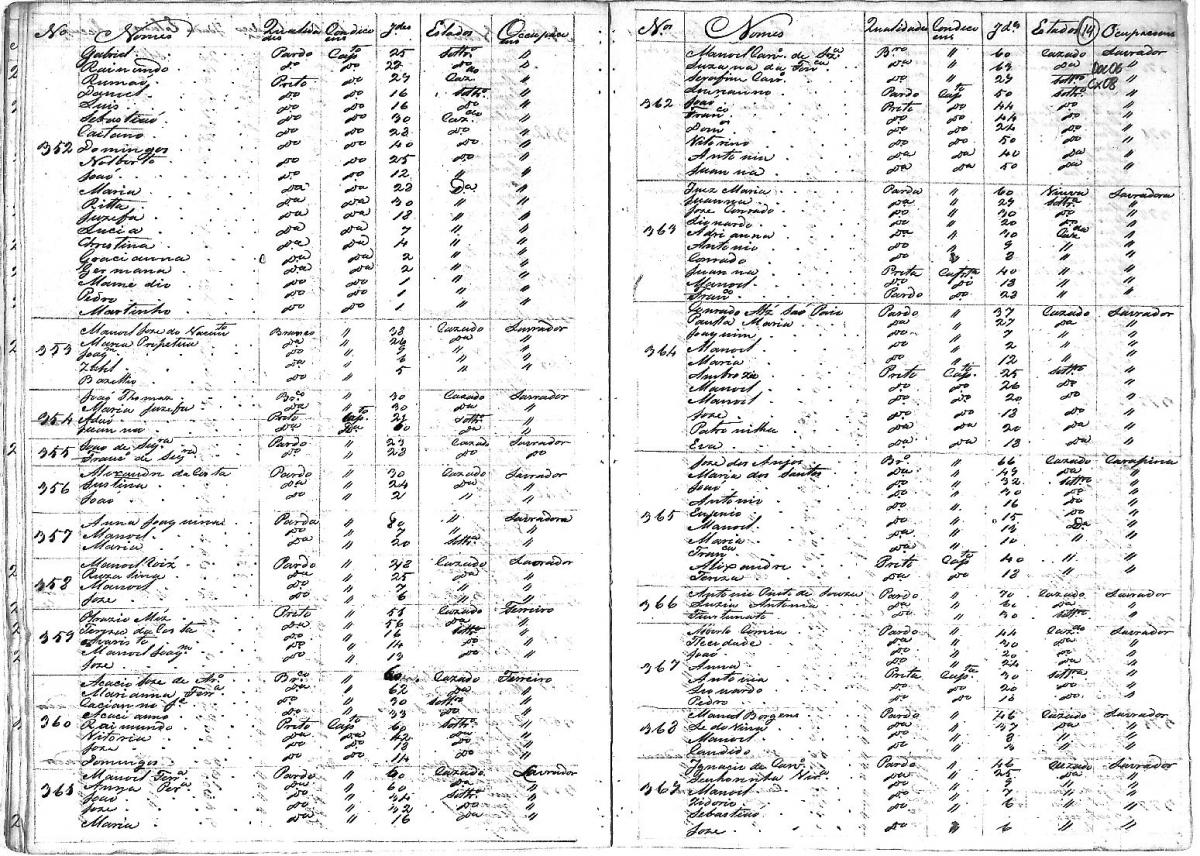 No Nomes Qualidde Condico ens Jdes Estados Ocupaco ens
Gabriel Pardo Capto 25 Soltro "
Raimundo do do 22 do "
Rumao Preto do 27 Caz "
Daniel do do 16 Soltro "
Luis do do 16 do "
Sebastiaõ do do 30 Cazdo "
Caetano do do 23 do "
352 Domingos do do 40 do "
Nolberto do do 25 do "
Joaõ do do 12 " "
Maria da da 23 Da "
Ritta da da 30 " "
Juzefa da da 18 " "
Lucia da da 7 " "
Crestina da da 4 " "
Gracianna da da 2 " "
Germana da da 2 " "
Mamedio do do 1 " "
Pedro do do 1 " "
Martinho do do 1 " "
Manoel Joze do Nacimto Branco " 38 Cazado Lavrador
Maria Prepetua da " 26 da "
353 Joaqm do " 9 " "
da " 6 " "
Bazilio do " 5 " "
Joaõ Thomaz Brco " 30 Cazado Lavrador
Maria Juzefa da " 30 da "
354 Adaõ Preto Capto 21 Soltro "
Juanna da Da 60 da "
355 Joaõ de Siqra Pardo " 23 Cazado Lavrador
Francco de Siqra do " 28 do do
Alexandre da Costa Pardo " 30 Cazado Lavrador
356 Justina da " 24 da "
Joaõ do " 2 " "
Anna Joaquina Parda " 80 " Lavradora
357 Manoel do " 7 " "
Maria da " 20 Soltra "
Manoel Roiz Pardo " 28 Cazado Lavrador
358 Ruzalina da " 25 da "
Manoel do " 7 " "
Joze do " 6 " "
Preto " 51 Cazado Ferreiro
359 Tereza da Costa da " 56 da "
Avaristo do " 16 Soltro "
Manoel Joaqm do " 14 do "
Joze do " 13 do "
Acacio Joze de Brco " 60 Cazado Ferreiro
Marianna Ferra da " 62 da "
do " 30 Soltro "
Acaciano do " 33 do "
360 Raimundo Preto Capto 60 Soltro "
Vitoria da da 42 da "
Joze do do 18 do "
Domingos do do 14 do "
Manoel Ferra Pardo " 60 Cazado Lavrador
361 Anna Pera da " 60 da "
Joaõ do " 34 Soltro "
Joze do " 32 do "
Maria da " 16 da "
No Nomes Qualidade Condico ens Jdes Estados 19 Ocupacoens
Manoel Carn. de Bro " 60 Cazado Lavrador
Suzana da Fonca da " 69 da Doc06 "
Serafina Carn. da " 27 Soltra Cx08 "
Pardo Capto 50 Soltro "
362 Joaõ Preto do 44 do "
Franco do do 44 do "
do do 24 do "
Vitorino do do 50 do "
Antonia da da 40 da "
Juanna da da 50 da "
Maria Parda " 60 Viuva Lavradora
Juanna da " 27 Soltra "
Joze Conrado do " 30 do "
Lionardo do " 20 do "
363 Adrianna da " 30 Cazda "
Antonio do " 9 " "
Conrado do " 8 " "
Juanna Preta Capta 40 " "
Manoel do do 18 " "
Franco Pardo do 23 " "
Conrado Alz Saõ Paio Pardo " 37 Cazado Lavrador
Fausta Maria da " 27 da "
Joaquim do " 7 " "
364 Manoel do " 2 " "
Maria da " 12 " "
Ambrozio Preto Capto 25 Soltro "
Manoel do do 26 do "
Manoel do do 20 do "
Joze do do 18 do "
Patronilla da da 20 da "
Eva da da 18 da "
Joze dos Anjos Bro " 66 Cazado Carapina
Maria dos Santos da " 49 da "
Joaõ do " 32 Soltro "
Antonio do " 30 do "
Eugenio do " 16 do "
365 Manoel do " 15 do "
Maria da " 13 Da "
Franca da " 10 " "
Alixandre Preto Capto 40 " "
da do 18 " "
Antonio de Souza Pardo " 70 Cazado Lavrador
366 Luzia Antonia da " 60 da "
Furtunato do " 30 Soltro "
Correia Pardo " 44 Cazdo Lavrador
da " 30 da "
Joaõ do " 20 do "
367 Anna da " 24 da "
Antonia Preta Capta 30 Soltra "
Lionardo do do 20 do "
Pedro do do 18 do "
Manoel Borgens Pardo " 46 Cazado Lavrador
368 da " 37 da "
Manoel do " 8 " "
Candido do " 4 " "
Ignacio de Carvo Pardo " 46 Cazado Lavrador
Senhorinha da " 25 da "
369 Manoel do " 9 " "
Zidorio do " 7 " "
Sebastiaõ do " 6 " "
Joze do " 6 " "